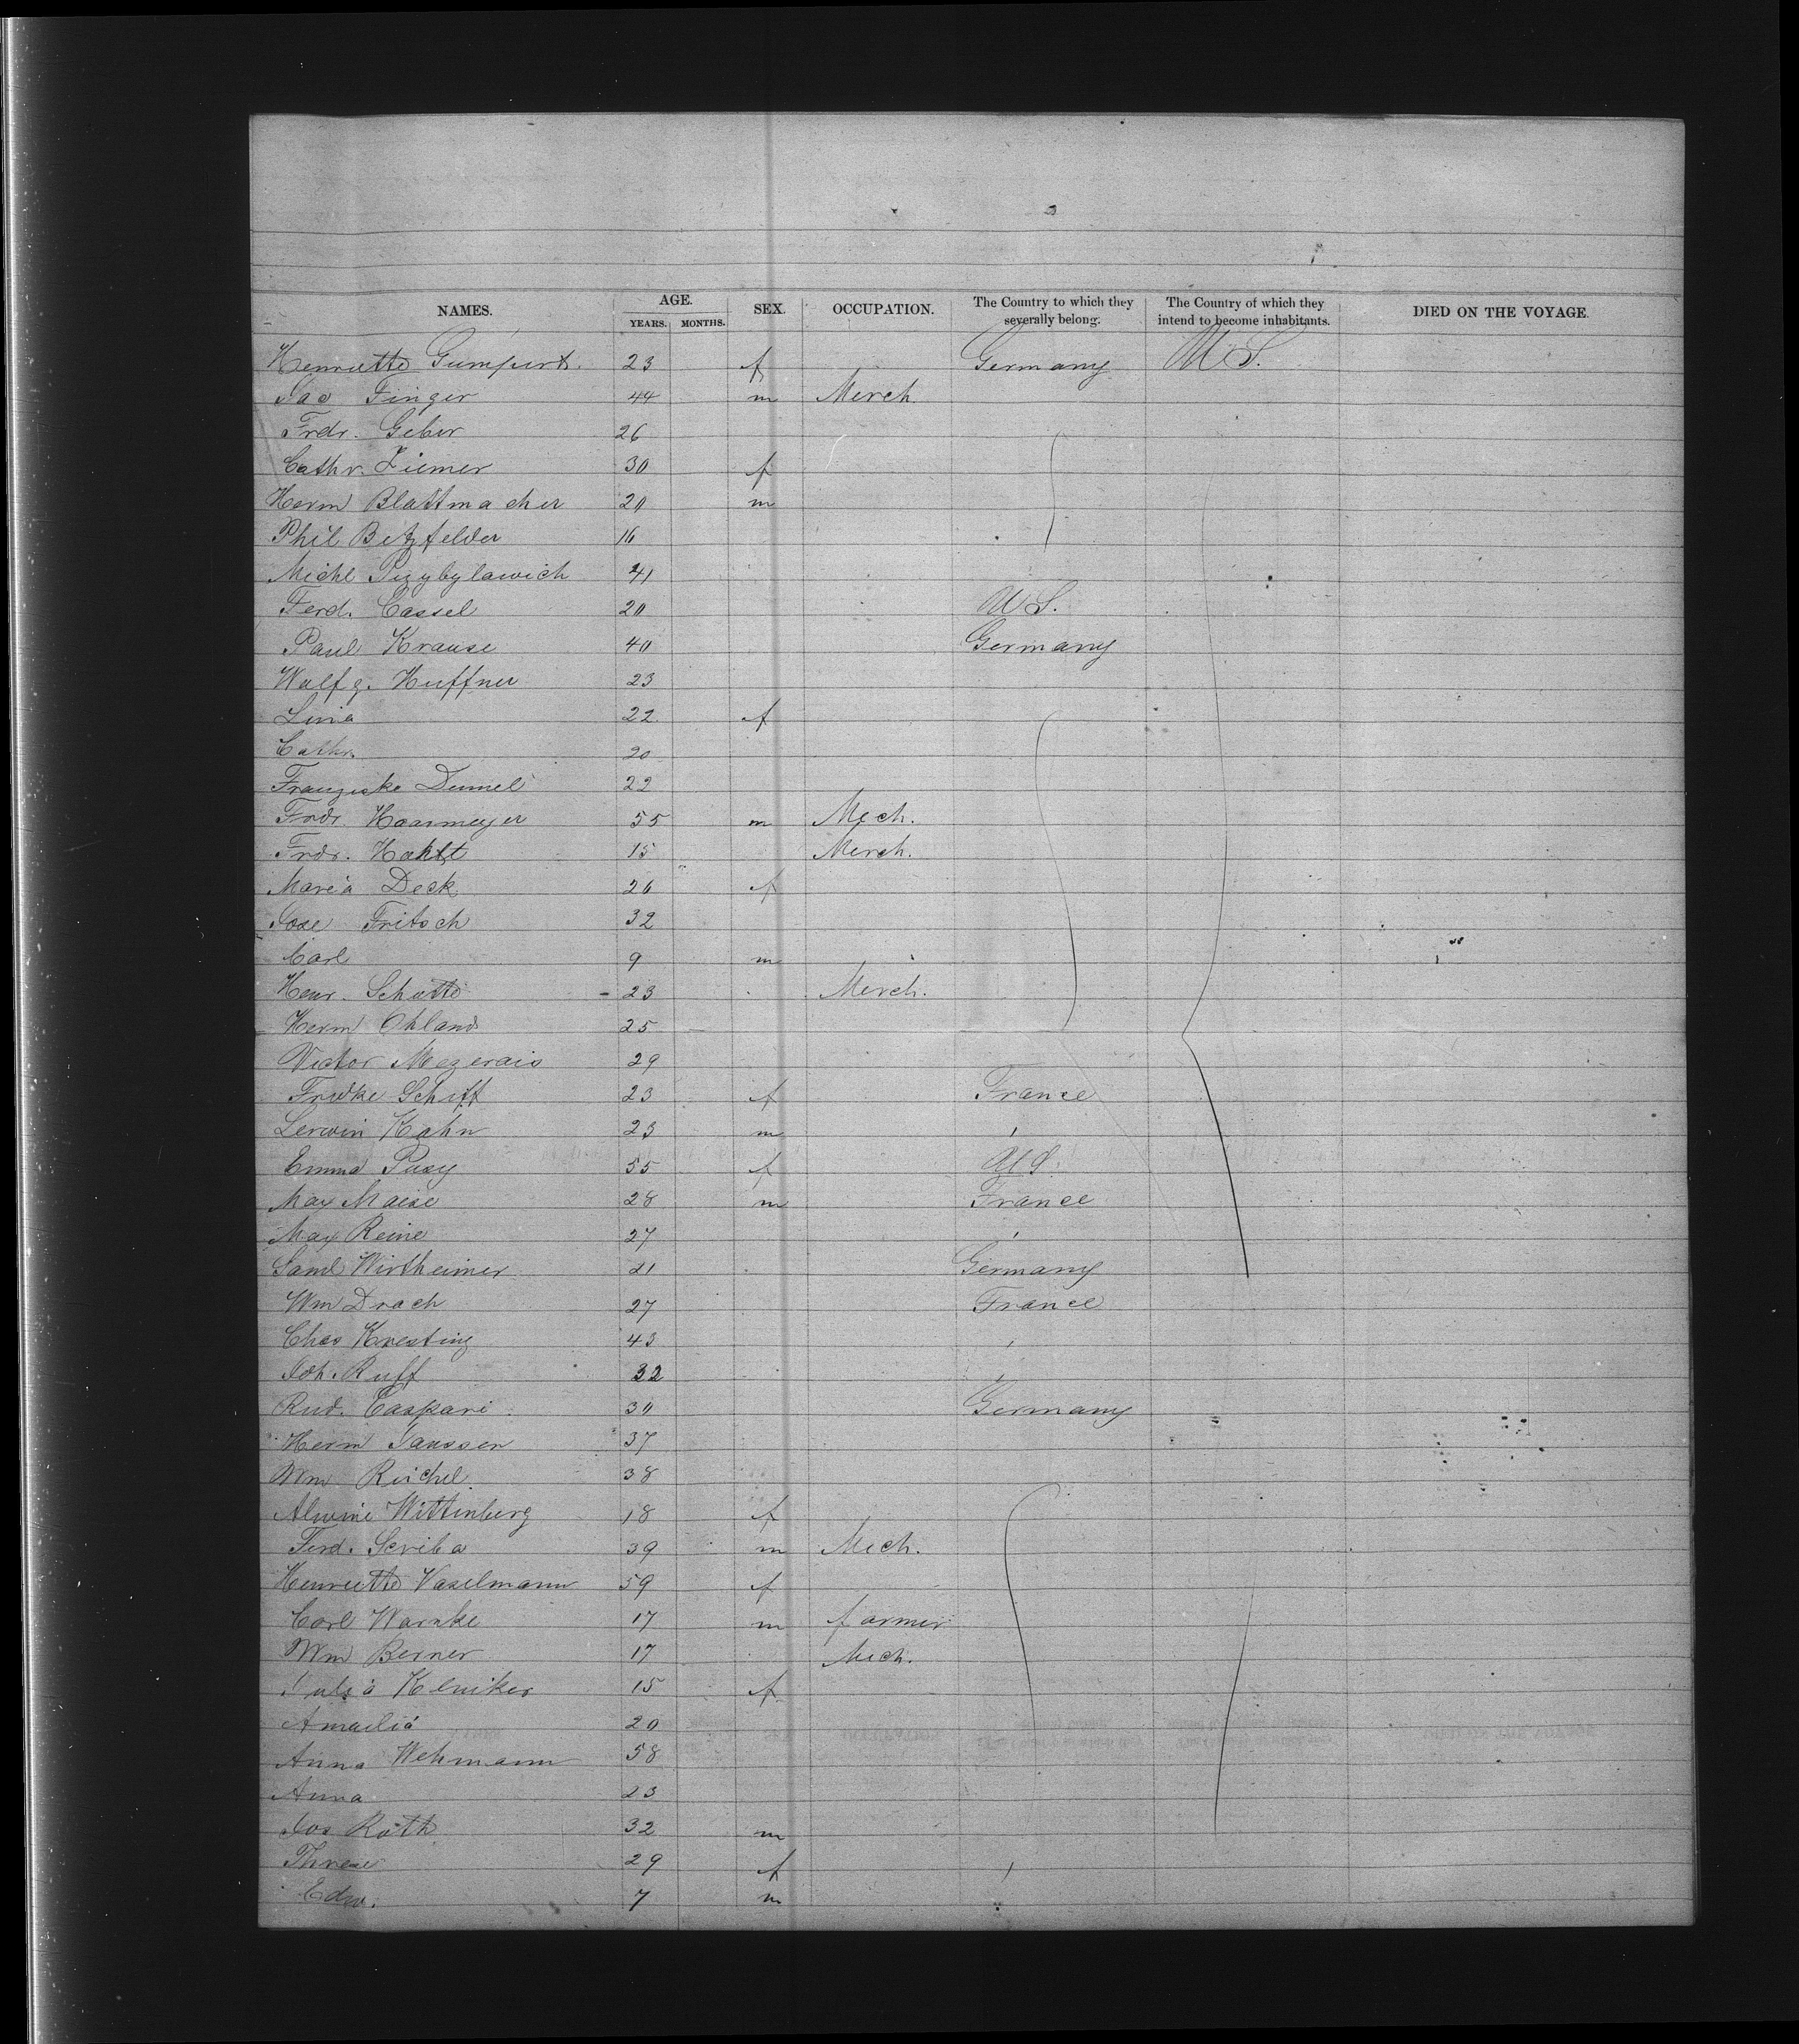 NAMES. AGE. YEARS. MONTHS. SEX. OCCUPATION. The Country to which they severally belong. The Country of which they intend to become inhabitants. DIED ON THE VOYAGE.
Henriette Gumpert. 23 f Germany U.S.
Jac Finger 44 m Merch.
Frdr. Geber 26
Cathr. Ziemer 30 f
Herm Blattmacher 20 m
Phil Betzfelder 16
Michl Przybylawich 41
Ferd. Cassel 20 U.S.
Paul Krause 40 Germany
Wolfg. Huffner 23
Lina 22 f
Cathr. 20
Franziska Dumel 22
Frdr. Hossmeyer 55 m Mech.
Frdr. Hohlt 15 Merch.
Maria Deck 26 f
Jose Fritsch 32
Carl 9 m
Henr. Schotte 23 Merch.
Herm Ohland 25
Victor Mezerais 29
Fridke Schiff 23 f France
Lerwin Kahn 23 m
Emma Pusy 55 f U.S.
Max Maise 28 m France
Max Reine 27
Saml Wirtheimer 21 Germany
Wm Drach 27 France
Chas Kresting 43
Joh. Ruff 32
Rud. Caspari 30 Germany
Herm Janssen 37
Wm Reichel 38
Alwine Wittenberg 18 f
Ferd. Scriba 39 m Mech.
Henriette Vaselmann 59 f
Carl Warnke 17 m farmer
Wm Berner 17 Mech.
Julia Kleniker 15 f
Amailia 20
Anna Wehmann 58
Anna 23
Jos Roth 32 m
Threse 29 f
Edw. 7 m